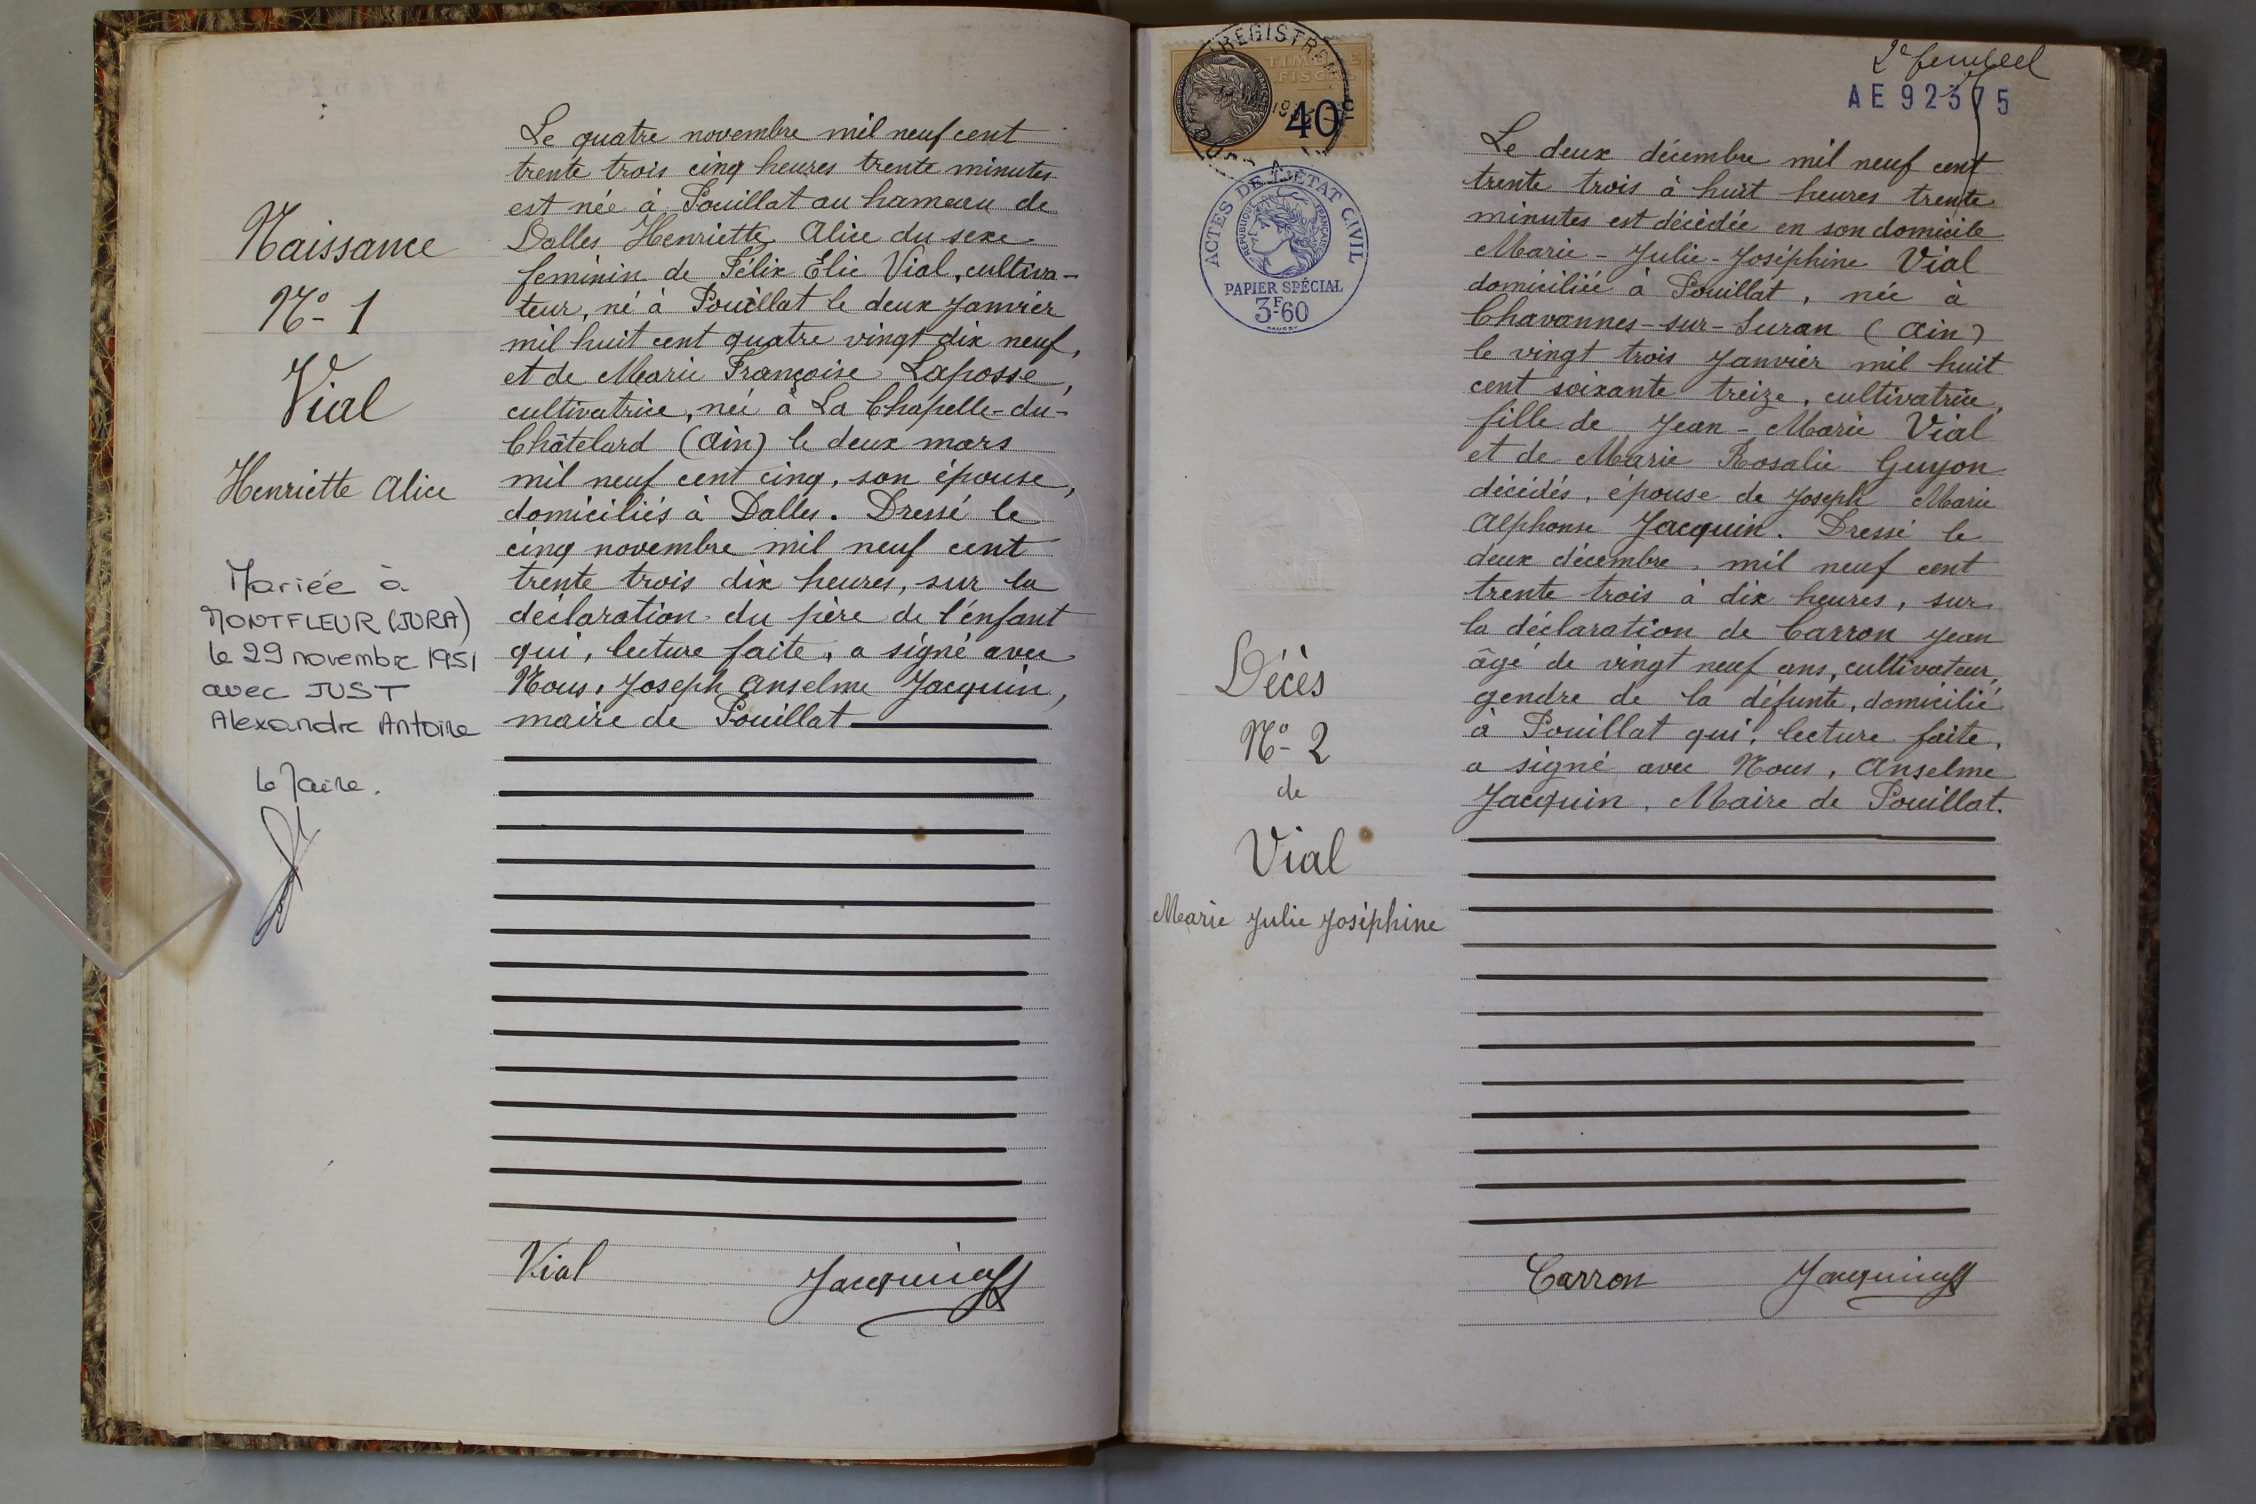 Naissance
N° 1
Vial
Henriette Alice
Mariée à
MONTFLEUR (JURA)
le 29 novembre 1951
avec JUST
Alexandre Antoine
Le Maire.
Le quatre novembre mil neuf cent
trente trois cinq heures trente minutes
est née à Pouillat au hameau de
Dalles Henriette Alice du sexe
feminin de Félix Élie Vial, cultiva-
teur, né à Pouillat le deux Janvier
mil huit cent quatre vingt dix neuf,
et de Marie Françoise Laposse,
cultivatrice, née à La Chapelle-du-
Châtelard (Ain) le deux mars
mil neuf cent cinq, son épouse,
domiciliés à Dalles. Dressé le
cinq novembre mil neuf cent
trente trois dix heures, sur la
déclaration du père de l'enfant
qui, lecture faite, a signé avec
Nous, Joseph Anselme Jacquin,
maire de Pouillat
Vial Jacquin
TIMBRE
FISCAL
40
ACTES DE L'ÉTAT CIVIL
RÉPUBLIQUE FRANÇAISE
PAPIER SPÉCIAL
3F60
AE 92375
Décès
N° 2
de
Vial
Marie Julie Joséphine
Le deux décembre mil neuf cent
trente trois à huit heures trente
minutes est décédée en son domicile
Marie-Julie-Joséphine Vial
domiciliée à Pouillat, née à
Chavannes-sur-Suran (Ain)
le vingt trois Janvier mil huit
cent soixante treize, cultivatrice,
fille de Jean-Marie Vial
et de Marie Rosalie Guyon
décédés, épouse de Joseph Marie
Alphonse Jacquin. Dressé le
deux décembre, mil neuf cent
trente trois à dix heures, sur
la déclaration de Carron Jean
âgé de vingt neuf ans, cultivateur,
gendre de la défunte, domicilié
à Pouillat qui, lecture faite,
a signé avec Nous, Anselme
Jacquin, Maire de Pouillat.
Carron Jacquin